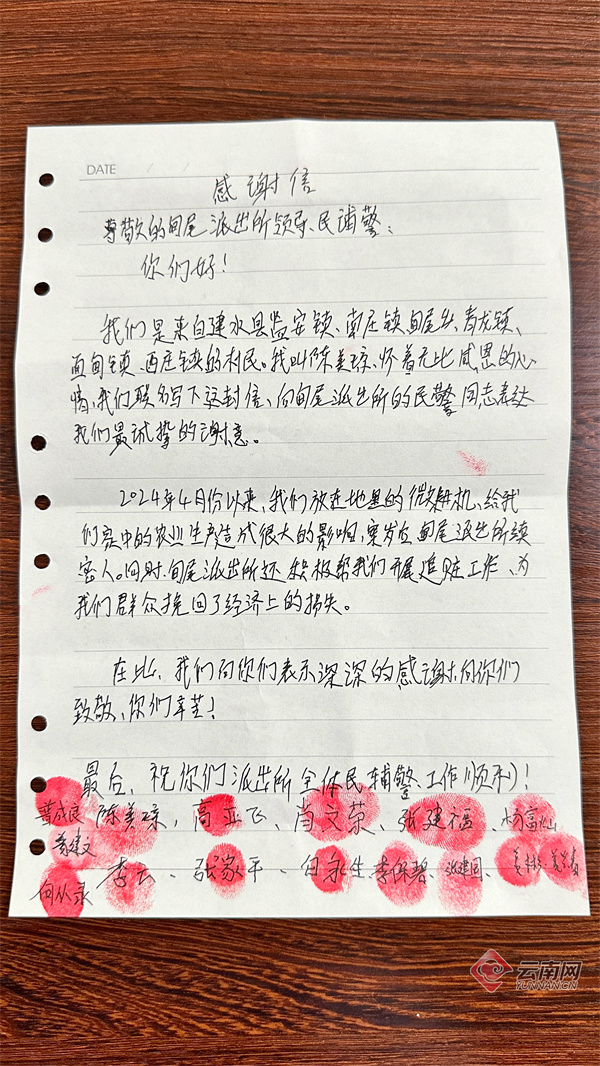 DATE / /
感谢信
尊敬的甸尾派出所领导、民辅警：
你们好！
我们是来自建水县临安镇、南庄镇、甸尾乡、青龙镇、
面甸镇、西庄镇的村民。我叫陈美琼，怀着无比感恩的心
情，我们联名写下这封信、向甸尾派出所的民警同志表达
我们最诚挚的谢意。
2024年4月份以来，我们放在地里的微耕机、给我
们家中的农业生产造成很大的影响，甸尾派出所
同时，甸尾派出所还积极帮我们开展追赃工作、为
我们群众挽回了经济上的损失。
在此、我们向你们表示深深的感谢，向你们
致敬、你们辛苦！
最后，祝你们派出所全体民辅警、工作顺利！
普成良 陈美琼，高亚飞、肖文荣、张建福、杨富
李云、张家平、白永生 李保碧、张建国、
向从永
云南网
YUNNAN.CN